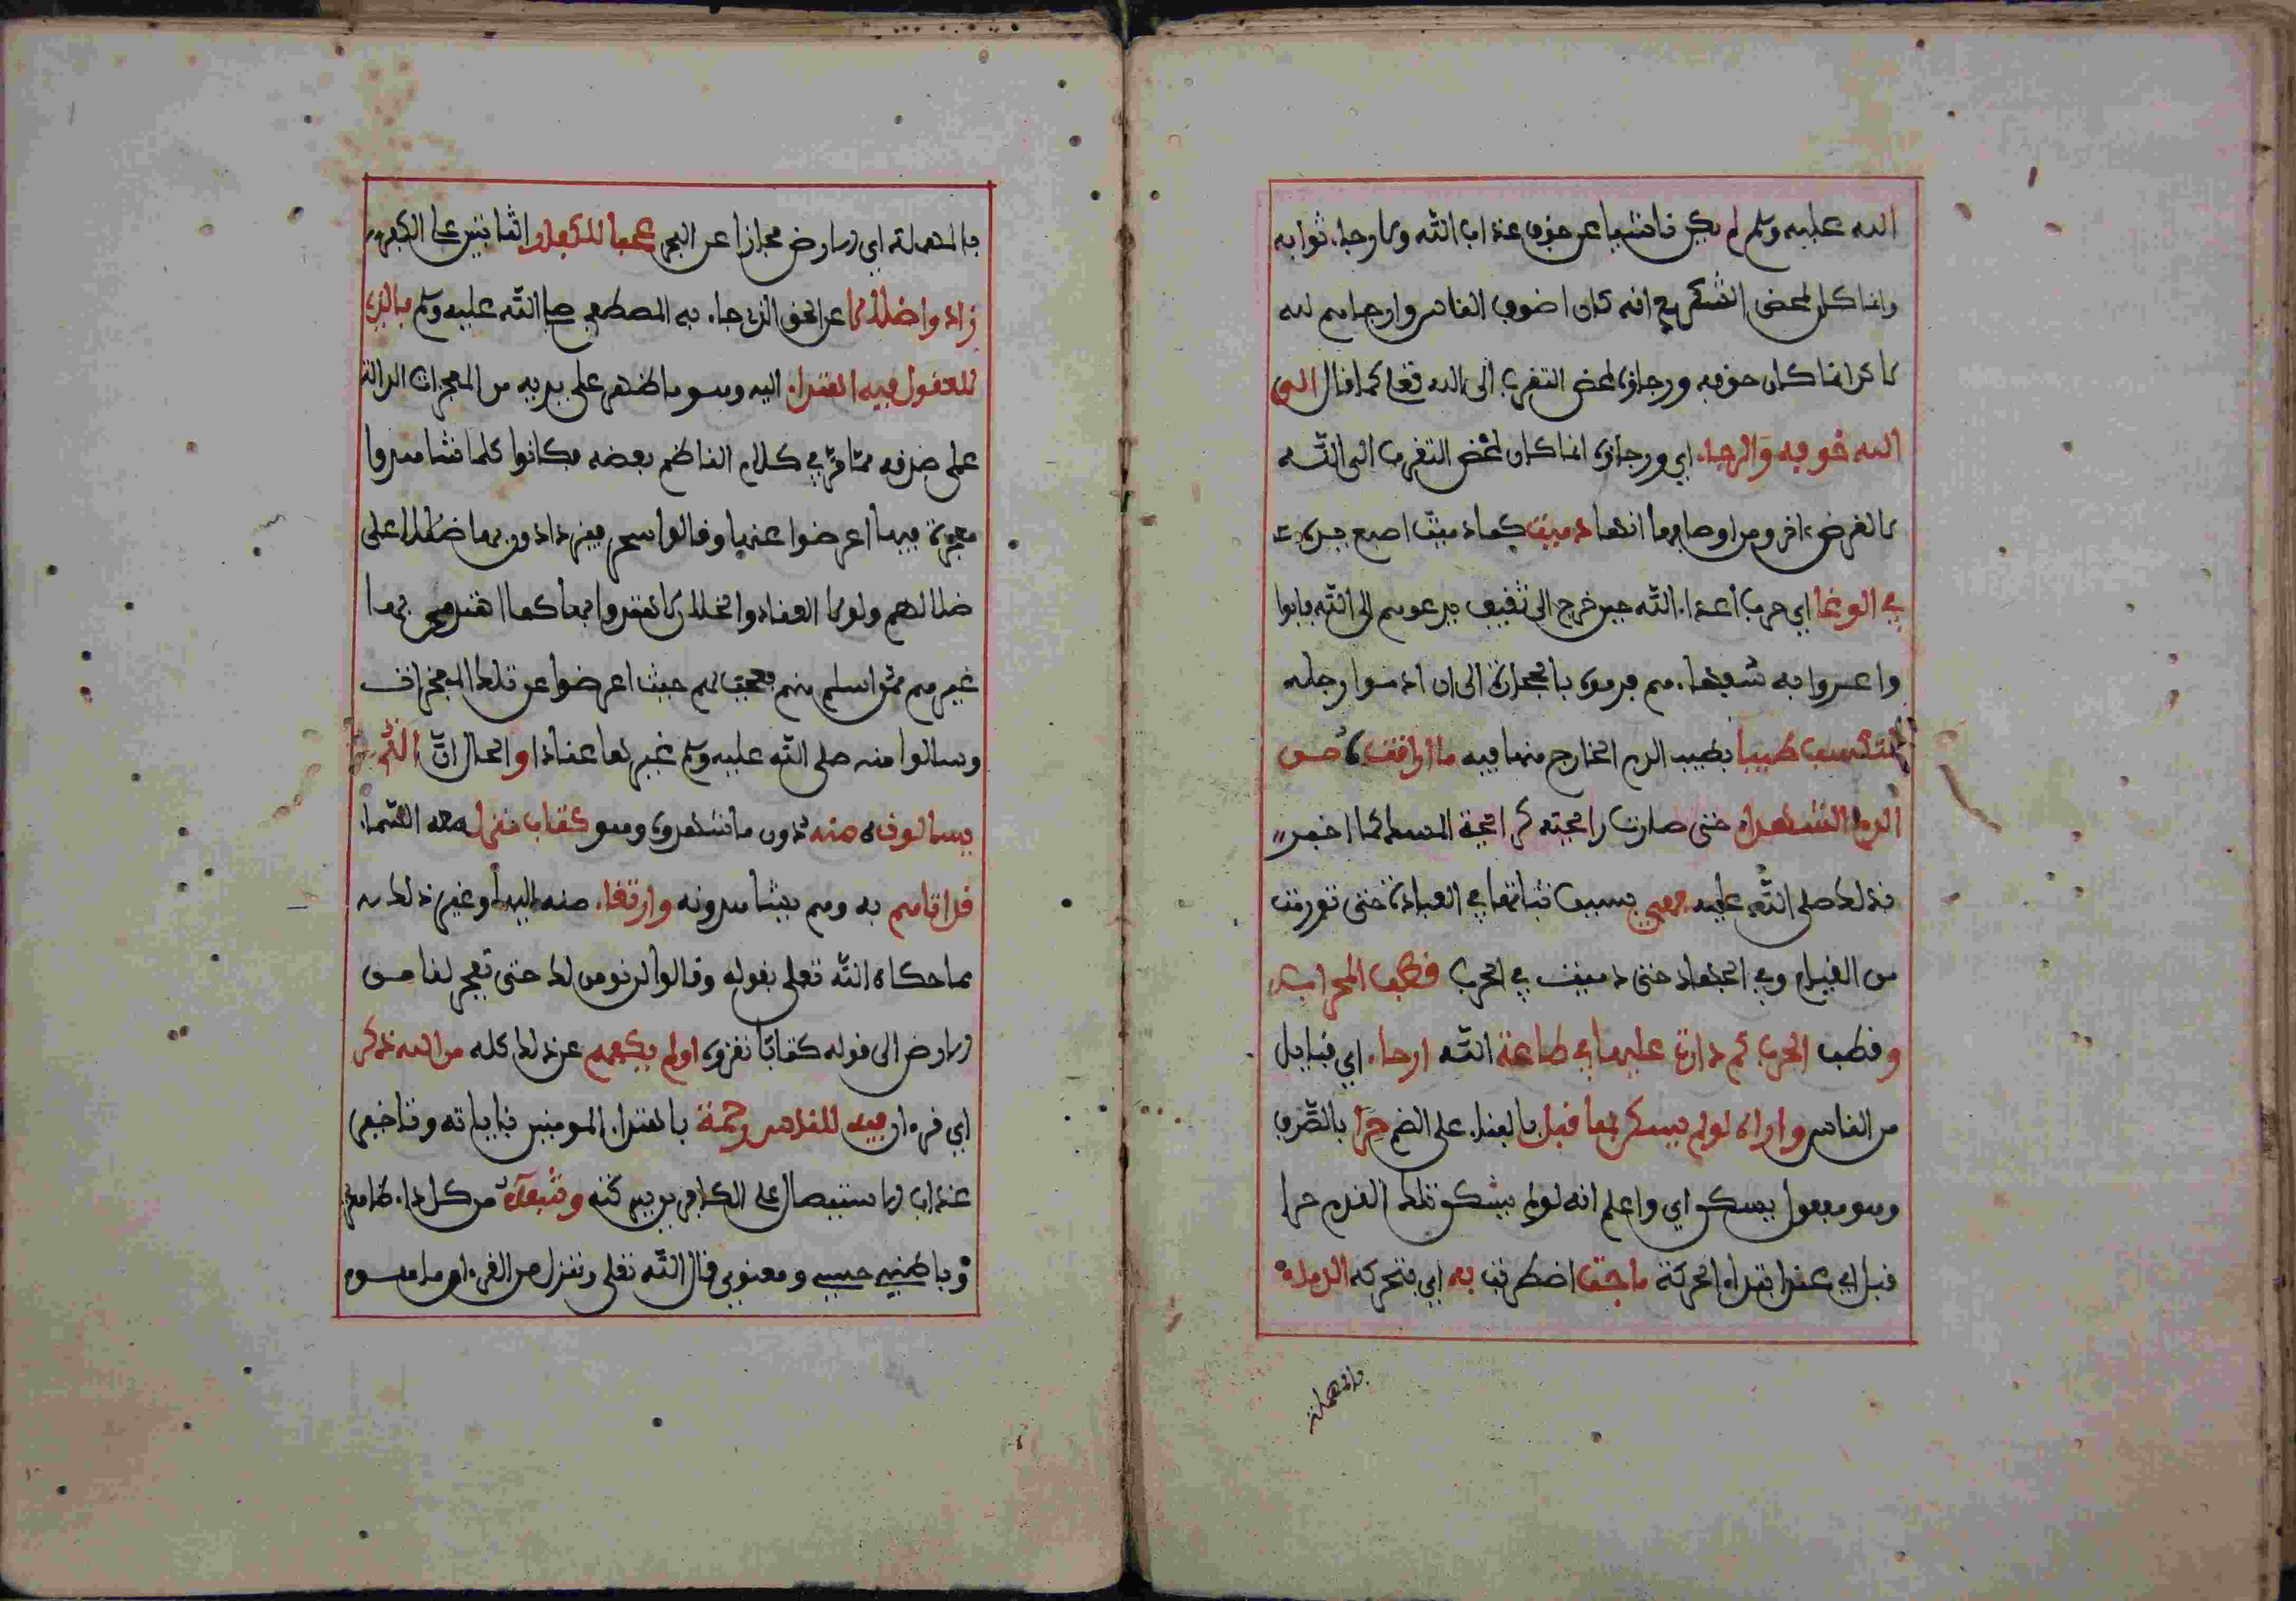 الله عليه وسلم لم يكن ناشيا عن خوف عذاب الله ولا رجاء ثوابه
وانما كان لمحض الشكر مع انه كان اخوف الناس وارجاهم لله
لاكن انما كان خوفه ورجاؤه لمحض التقرب الى الله تعلى كما قال الى
الله خوفه والرجاء اي ورجاؤه انما كان لمحض التقرب الى الله
لا لغرض اخر ومن اوصافهما انها دميت كما دميت اصبع
في الوغا اي حرب اعداء الله حين خرج الى ثقيف يدعوهم الى الله فابوا
واغروا به سفهاءهم فرموه بالحجارة الى ان ادموا رجليه
لتكتسب طيبا بطيب الدم الخارج منها فيه ما اراقت من
الدم الشهداء حتى صارت رائحته كرائحة المسك كما اخبر
بذلك صلى الله عليه فهي بسبب ثباتها في العبادة حتى تورمت
من القيام وفي الجهاد حتى دميت في الحرب قطب المحراب
وقطب الحرب كم دارت عليها في طاعة الله ارحاء اي قبايل
من الناس واراه لو لم يسكن بها قبل بالبناء على الضم حرا بالصرف
وهو مفعول يسكن اي واعلم انه لو لم يسكن بتلك القدم حرا
قبل اي عند ابتداء الحركة ماجت اضطربت به اي بتحركه الدماء
بالمهملة
بالمهملة اي الارض مجازا عن البحر عجبا للكفار الثابتين على الكفر
زادوا ضلالا عن الحق الذي جاء به المصطفى صلى الله عليه وسلم بالذي
للعقول فيه اهتداء اليه وهو ما ظهر على يديه من المعجزات الدالة
على صدقه مما مر في كلام الناظم بعضه فكانوا كلما شاهدوا
معجزة فيها اعرضوا عنها وقالوا سحر فيزدادون بها ضلالا على
ضلالهم ولولا العناد والخذلان لاهتدوا بها كما اهتدى بها
غيرهم ممن اسلم منهم فعجب لهم حيث اعرضوا عن تلك المعجزات
وسالوا منه صلى الله عليه وسلم غيرها عنادا والحال ان الذي
يسالونه منه دون ما شاهدوه وهو كتاب منزل معه السماء
قد اتاهم به وهم يشاهدونه وارتقاء منه اليها وغير ذلك
مما حكاه الله تعلى بقوله وقالوا لن نومن لك حتى تفجر لنا من
الارض الى قوله كتابا نقرؤه اولم يكفهم عن ذلك كله من الله ذكر
اي قرءان فيه للناس رحمة باهتداء المومنين باياته وتاخير
عذاب الاستيصال على الكافرين ببركته وشفاء من كل داء ظاهر
وباطن حسي ومعنوي قال الله تعلى وننزل من القرءان ما هو